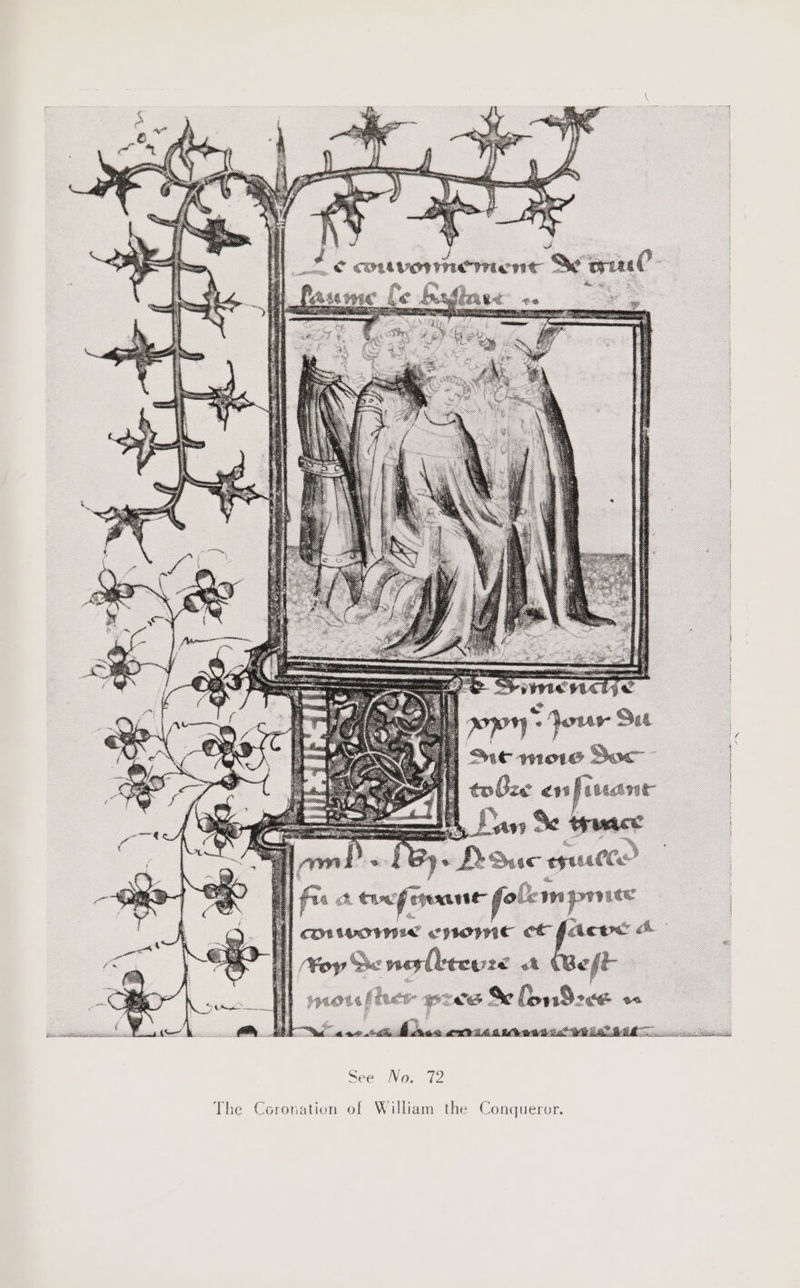 Le couronnement De guil
laume le bastart
Le Dimenche
xxvij. Jour Du
Dit mois Doc
tobre ensuivant
Lan De grace
mil . lxvj. le Duc guille
fu a tresgrant solempnite
couronne enoint et sacre a
Roy Denglleterre a West
moustier pres De londres
See No. 72
The Coronation of William the Conqueror.